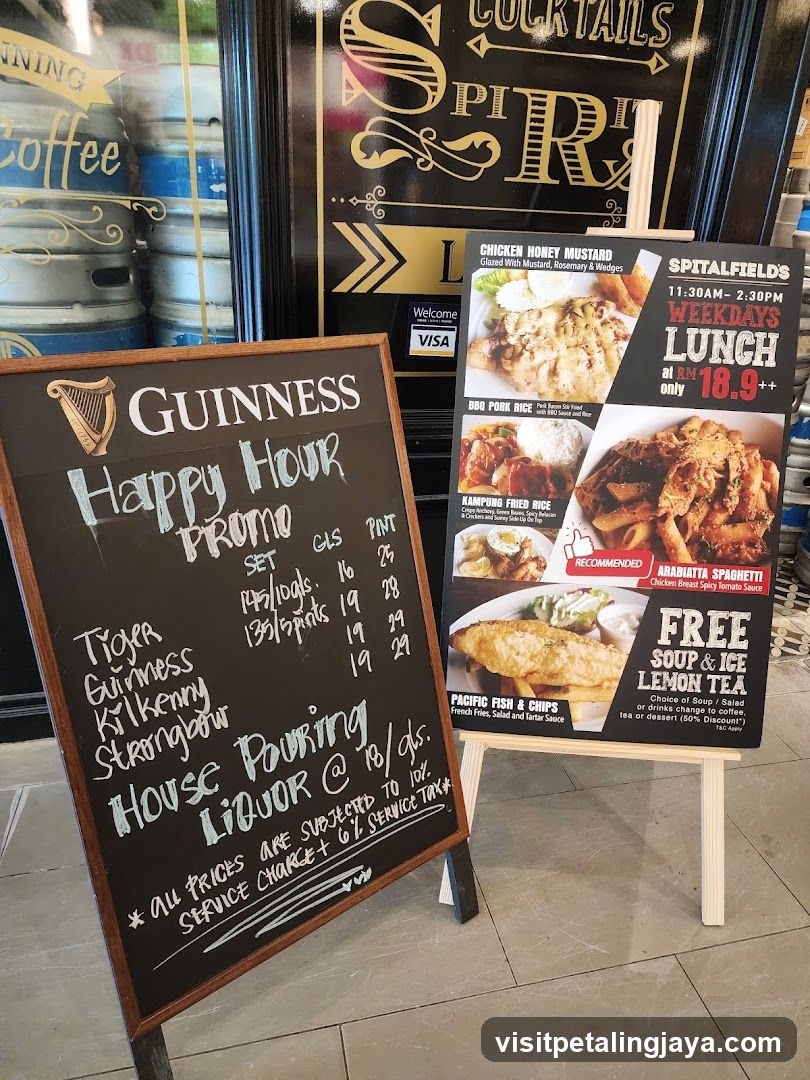 NNING
Coffee
COCKTAILS
SPIRIT
Welcome
VISA
GUINNESS
Happy Hour
PROMO
SET GLS PINT
Tiger 145/10gls. 16 25
Guinness 135/5pints 19 28
Kilkenny 19 29
Strongbow 19 29
House Pouring
LIQUOR @ 18/gls.
* ALL PRICES ARE SUBJECTED TO 10%
SERVICE CHARGE + 6% SERVICE TAX *
CHICKEN HONEY MUSTARD
Glazed With Mustard, Rosemary & Wedges
SPITALFIELD'S
11:30AM- 2:30PM
WEEKDAYS
LUNCH
at only RM 18.9++
BBQ PORK RICE Pork Bacon Stir Fried
with BBQ Sauce and Rice
KAMPUNG FRIED RICE
Crispy Anchovy, Green Beans, Spicy Belacan
& Crackers and Sunny Side Up On Top
RECOMMENDED
ARABIATTA SPAGHETTI
Chicken Breast Spicy Tomato Sauce
FREE
SOUP & ICE
LEMON TEA
Choice of Soup / Salad
or drinks change to coffee,
tea or dessert (50% Discount*)
T&C Apply
PACIFIC FISH & CHIPS
French Fries, Salad and Tartar Sauce
visitpetalingjaya.com